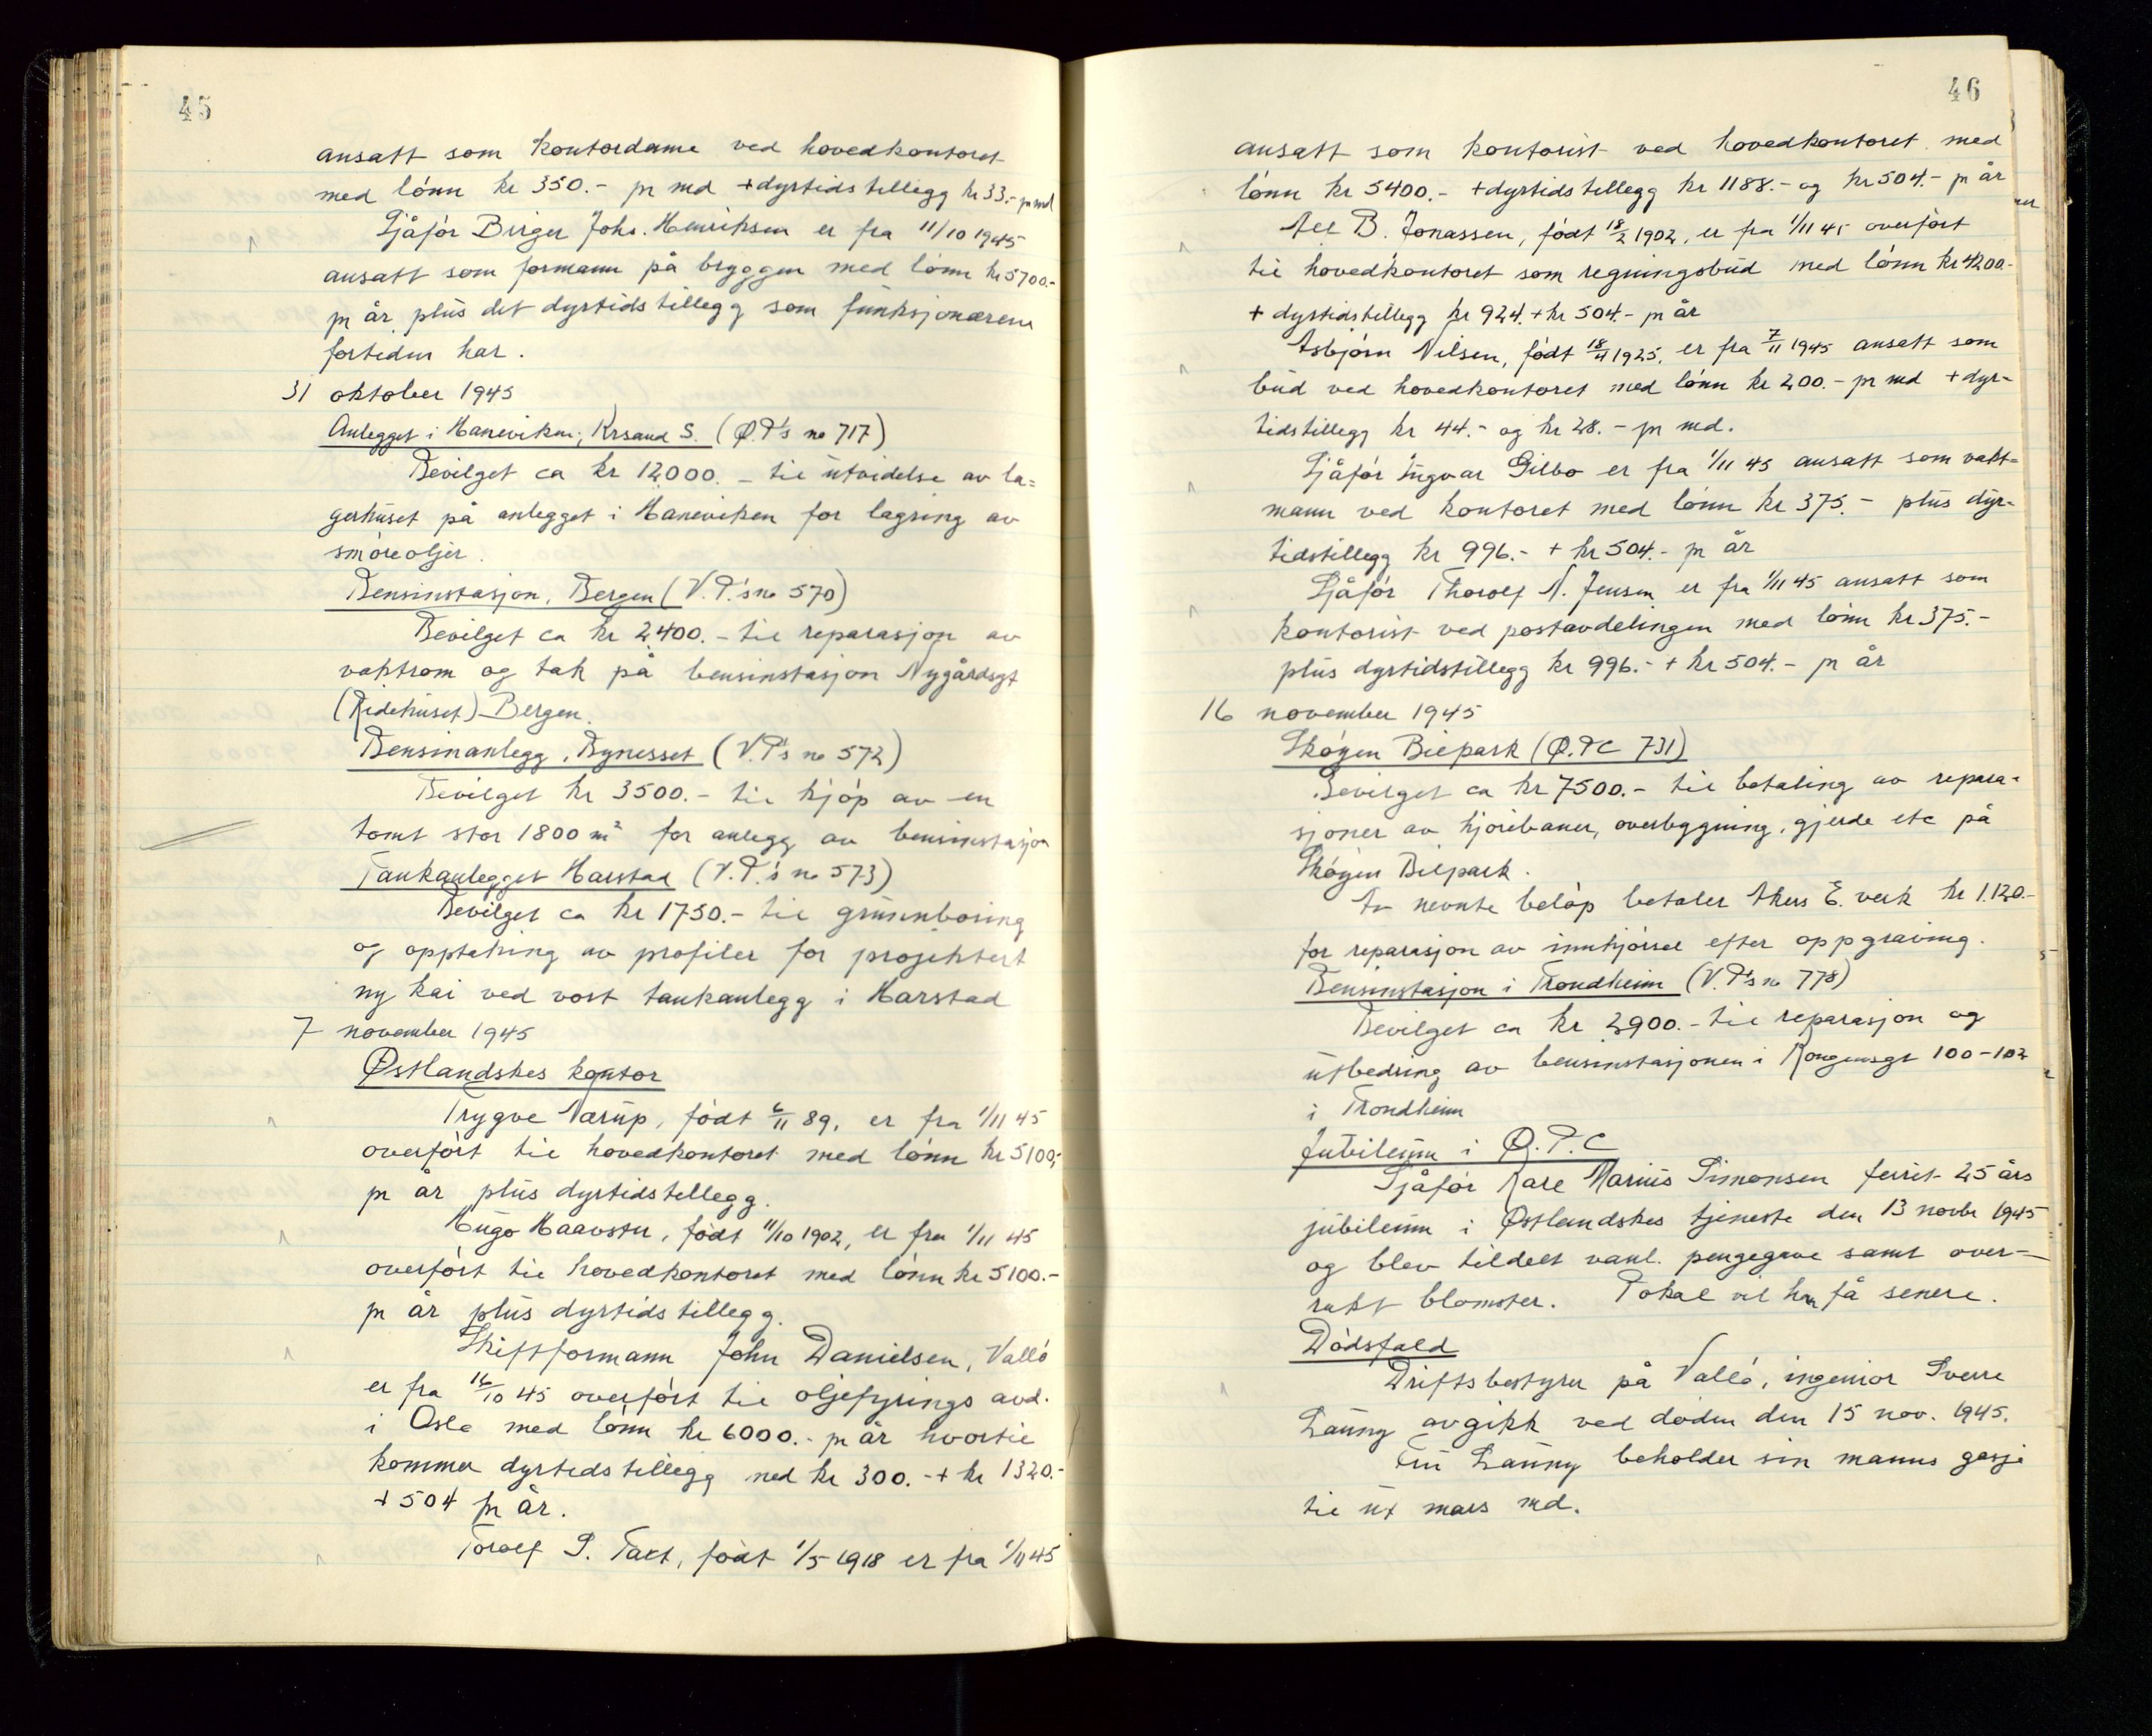 45
ansatt som kontordame ved hovedkontoret
med lønn kr 350.- pr md + dyrtidstillegg kr 33.- pr md
Sjåfør Birger Johs. Henriksen er fra 11/10 1945
ansatt som formann på bryggen med lønn kr 5700.-
pr år plus det dyrtidstillegg som funksjonærene
fortiden har.
31 oktober 1945
Anlegget i Haneviken, Krsand S. (Ø.P's no 717)
Bevilget ca kr 12000.- til utvidelse av la=
gerhuset på anlegget i Haneviken for lagring av
smøreoljer.
Bensinstasjon, Bergen (V.P.'s no 570)
Bevilget ca kr 2400.- til reparasjon av
vaktrom og tak på bensinstasjon Nygårdsgt
(Ridehuset) Bergen.
Bensinanlegg, Bynesset (V.P's no 572)
Bevilget kr 3500.- til kjøp av en
tomt stor 1800 m² for anlegg av bensinstasjon
Tankanlegget Harstad (V.P.'s no 573)
Bevilget ca kr 1750.- til grunnboring
og opptakning av profiler for projektert
ny kai ved vort tankanlegg i Harstad
7 november 1945
Østlandskes kontor
Trygve Narup, født 6/11 89, er fra 1/11 45
overført til hovedkontoret med lønn kr 5100,-
pr år plus dyrtidstillegg.
Hugo Haavster, født 11/10 1902, er fra 1/11 45
overført til hovedkontoret med lønn kr 5100.-
pr år plus dyrtidstillegg.
Skiftformann John Danielsen, Vallø
er fra 16/10 45 overført til oljefyrings avd.
i Oslo med lønn kr 6000.- pr år hvortil
kommer dyrtidstillegg med kr 300.- + kr 1320.-
+ 504 pr år.
Torolf S. født 1/5 1918 er fra 1/11 45
46
ansatt som kontorist ved hovedkontoret med
lønn kr 5400.- + dyrtidstillegg kr 1188.- og kr 504.- pr år
B. Jonassen, født 18/2 1902, er fra 1/11 45 overført
til hovedkontoret som regningsbud med lønn kr 4200.-
+ dyrtidstillegg kr 924.+ kr 504.- pr år
Asbjørn Nilsen, født 18/4 1925, er fra 7/11 1945 ansatt som
bud ved hovedkontoret med lønn kr 200.- pr md + dyr=
tidstillegg kr 44.- og kr 28.- pr md.
Sjåfør Ingvar Gilbo er fra 1/11 45 ansatt som vakt=
mann ved kontoret med lønn kr 375.- plus dyr=
tidstillegg kr 996.- + kr 504.- pr år
Sjåfør Thorolf N. Jensen er fra 1/11 45 ansatt som
kontorist ved postavdelingen med lønn kr 375.-
plus dyrtidstillegg kr 996.- + kr 504.- pr år
16 november 1945
Skøyen Bilpark (Ø.P.C 731)
Bevilget ca kr 7500.- til betaling av repara=
sjoner av kjørebaner, overbygning, gjerde etc på
Skøyen Bilpark.
Av nevnte beløp betaler Akers E.verk kr 1.120.-
for reparasjon av innkjørsel efter oppgraving.
Bensinstasjon i Trondheim (V.P's no 778)
Bevilget ca kr 2900.- til reparasjon og
utbedring av bensinstasjonen i Kongensgt 100-102
i Trondheim
Jubileum i Ø.P.C
Sjåfør Kare Marius Simonsen feiret 25 års
jubileum i Østlandskes tjeneste den 13 novbr 1945
og blev tildelt vanl. pengegave samt over=
rakt blomster. Pokal vil han få senere.
Dødsfald
Driftsbestyrer på Vallø, ingeniør Sverre
Lanny avgikk ved døden den 15 nov. 1945.
Fru Lanny beholder sin manns gasje
til ut mars md.